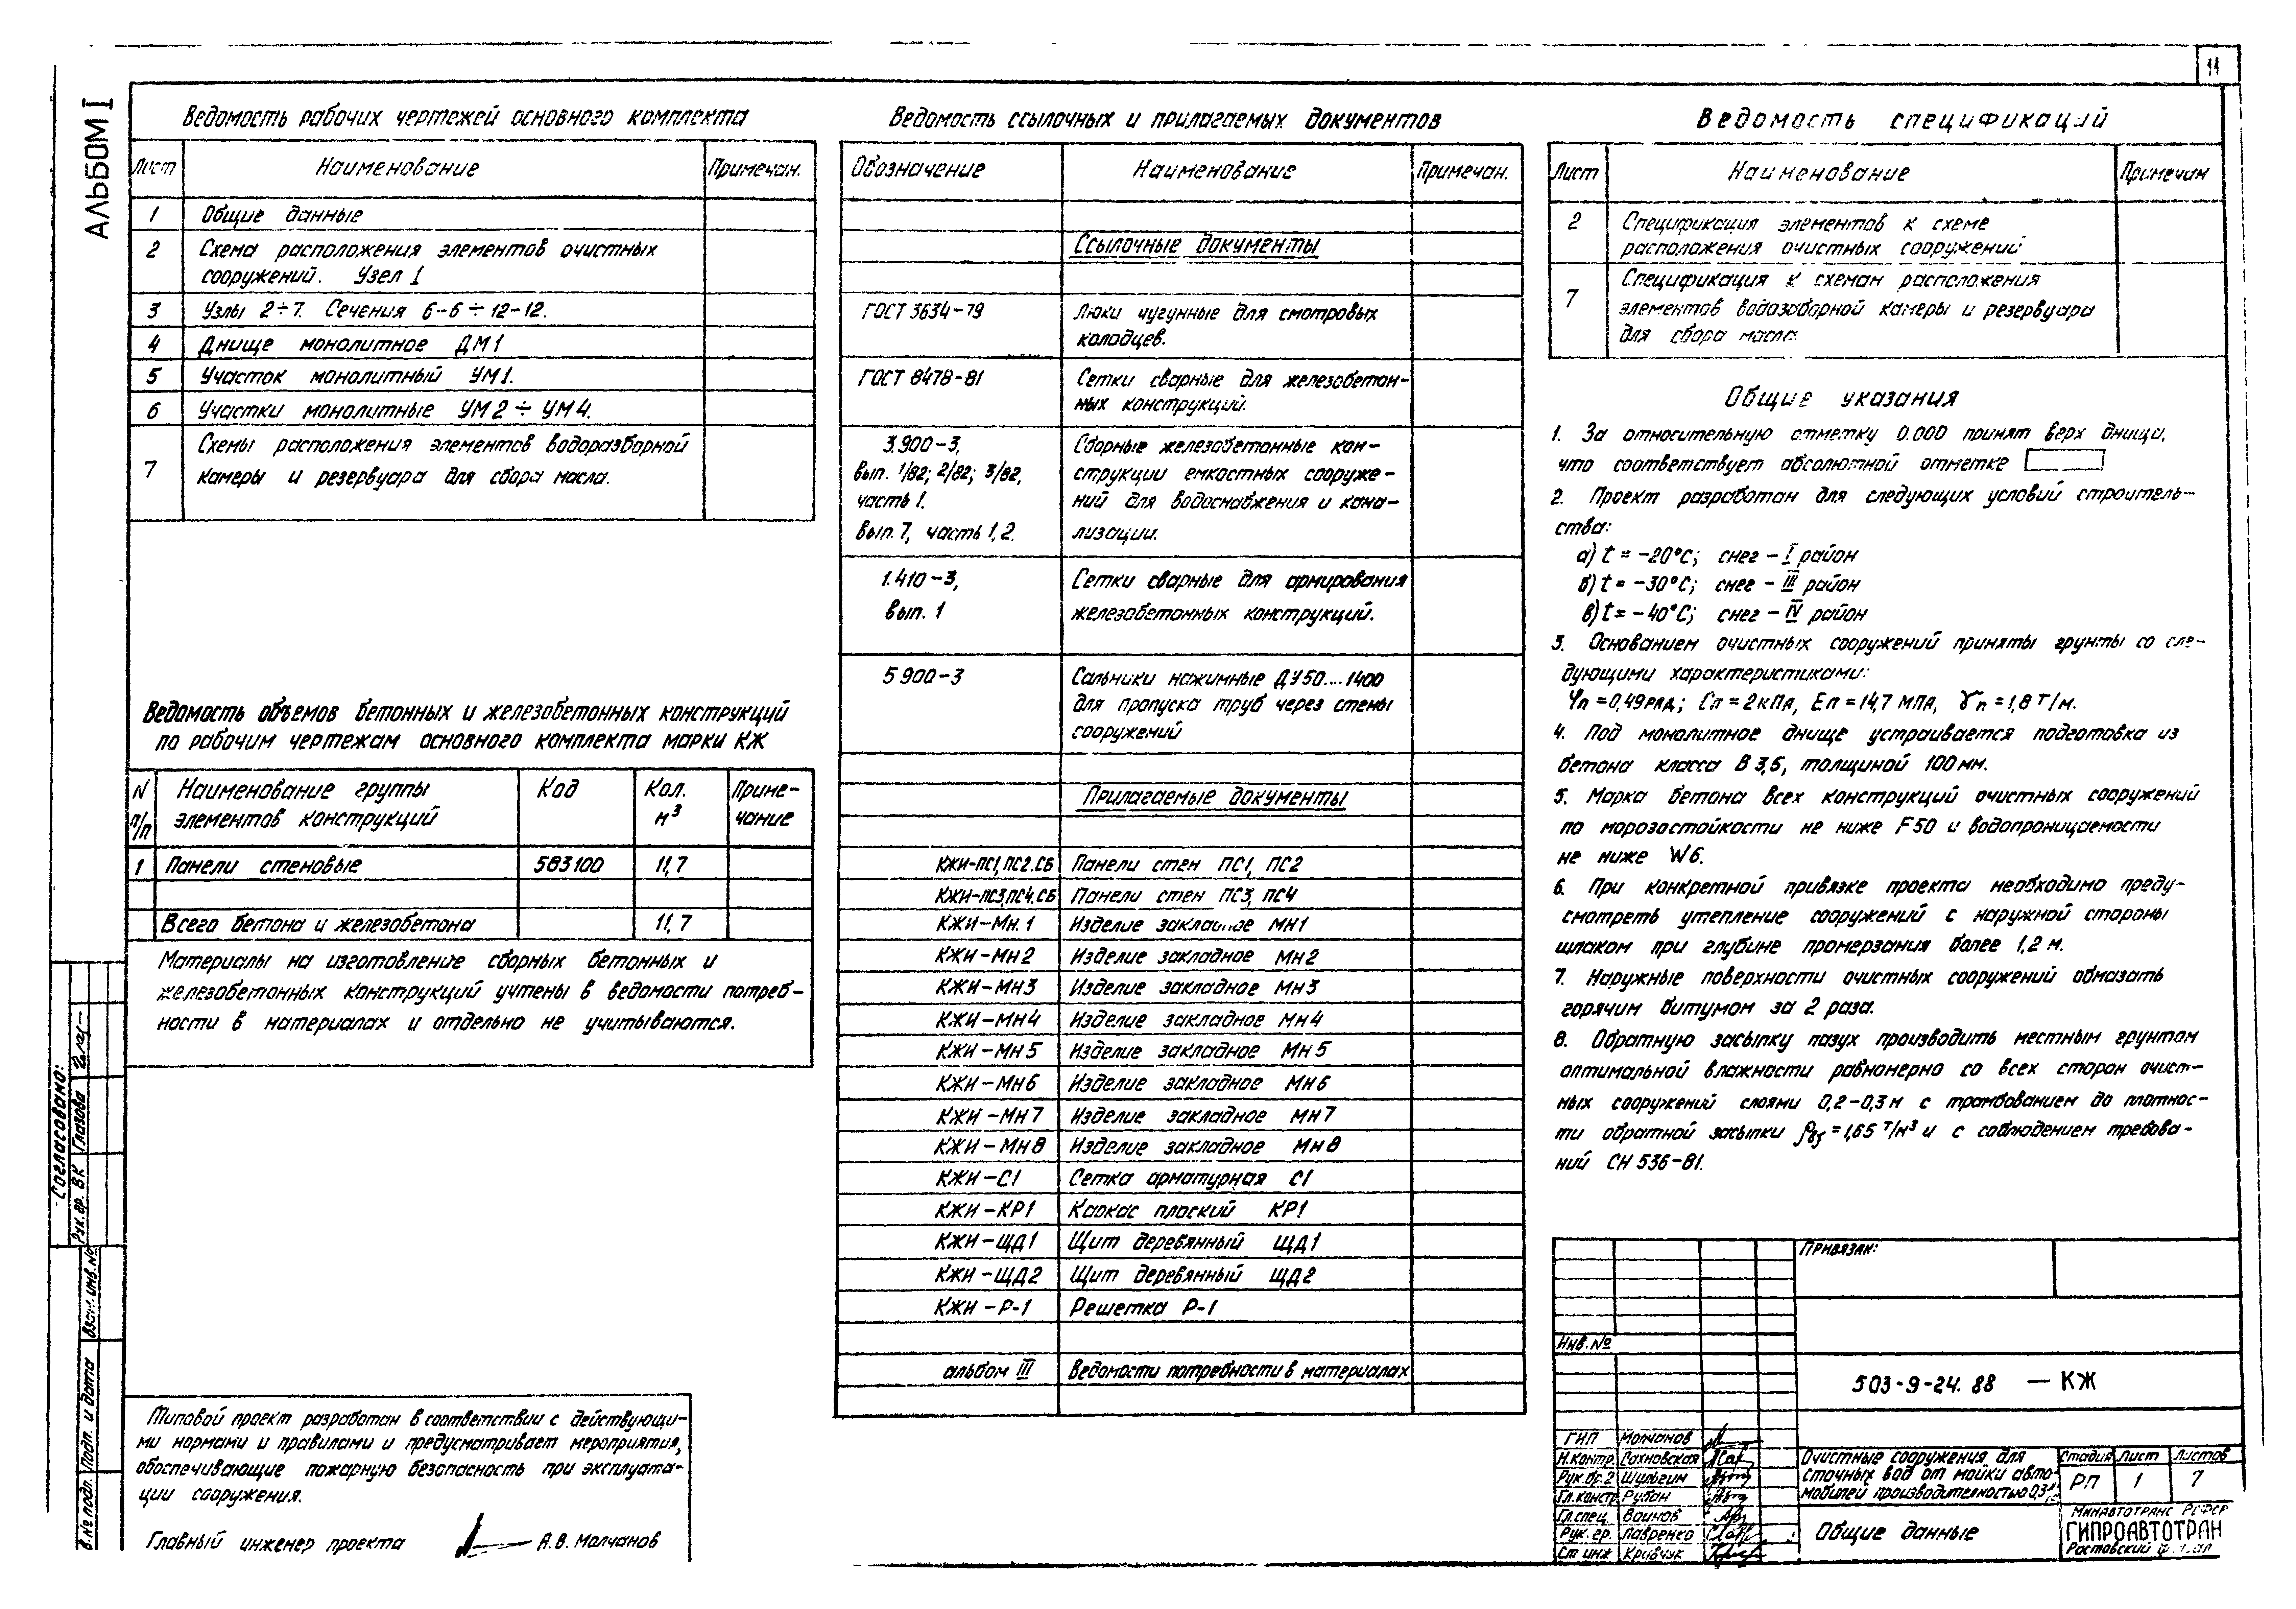 11
АЛЬБОМ I
Ведомость рабочих чертежей основного комплекта
Лист Наименование Примечан.
1 Общие данные
2 Схема расположения элементов очистных
сооружений. Узел 1
3 Узлы 2÷7. Сечения 6-6 ÷ 12-12.
4 Днище монолитное ДМ1
5 Участок монолитный УМ1.
6 Участки монолитные УМ2 ÷ УМ4.
7 Схемы расположения элементов водоразборной
камеры и резервуара для сбора масла.
Ведомость объемов бетонных и железобетонных конструкций
по рабочим чертежам основного комплекта марки КЖ
N п/п Наименование группы элементов конструкций Код Кол. м³ Приме-чание
1 Панели стеновые 583100 11,7
Всего бетона и железобетона 11,7
Материалы на изготовление сборных бетонных и
железобетонных конструкций учтены в ведомости потреб-
ности в материалах и отдельно не учитываются.
Типовой проект разработан в соответствии с действующи-
ми нормами и правилами и предусматривает мероприятия,
обеспечивающие пожарную безопасность при эксплуата-
ции сооружения.
Главный инженер проекта А.В. Молчанов
Согласовано:
Рук.гр. ВК Глазова
Взам. инв. №
Подп. и дата
в.№ подл.
Ведомость ссылочных и прилагаемых документов
Обозначение Наименование Примечан.
Ссылочные документы
ГОСТ 3634-79 Люки чугунные для смотровых
колодцев.
ГОСТ 8478-81 Сетки сварные для железобетон-
ных конструкций.
3.900-3, Сборные железобетонные кон-
вып. 1/82; 2/82; 3/82, струкции емкостных сооруже-
часть 1. ний для водоснабжения и кана-
вып. 7, часть 1, 2. лизации.
1.410-3, Сетки сварные для армирования
вып. 1 железобетонных конструкций.
5 900-3 Сальники нажимные ДУ50....1400
для пропуска труб через стены
сооружений
Прилагаемые документы
КЖИ-ПС1, ПС2.СБ Панели стен ПС1, ПС2
КЖИ-ПС3,ПС4.СБ Панели стен ПС3, ПС4
КЖИ-Мн.1 Изделие закладное МН1
КЖИ-Мн2 Изделие закладное Мн2
КЖИ-Мн3 Изделие закладное Мн3
КЖИ-Мн4 Изделие закладное Мн4
КЖИ-Мн5 Изделие закладное Мн5
КЖИ-Мн6 Изделие закладное Мн6
КЖИ-Мн7 Изделие закладное Мн7
КЖИ-Мн8 Изделие закладное Мн8
КЖИ-С1 Сетка арматурная С1
КЖИ-КР1 Каркас плоский КР1
КЖИ-ЩД1 Щит деревянный ЩД1
КЖИ-ЩД2 Щит деревянный ЩД2
КЖИ-Р-1 Решетка Р-1
альбом III Ведомости потребности в материалах
Ведомость спецификаций
Лист Наименование Примечан
2 Спецификация элементов к схеме
расположения очистных сооружений
7 Спецификация к схемам расположения
элементов водозаборной камеры и резервуара
для сбора масла.
Общие указания
1. За относительную отметку 0.000 принят верх днища,
что соответствует абсолютной отметке
2. Проект разработан для следующих условий строитель-
ства:
а) t = -20°С; снег - I район
б) t = -30°С; снег - III район
в) t = -40°С; снег - IV район
3. Основанием очистных сооружений приняты грунты со сле-
дующими характеристиками:
φп = 0,49рад; Cп = 2кПа, Eп = 14,7 МПа, γп = 1,8 Т/м.
4. Под монолитное днище устраивается подготовка из
бетона класса В 3,5, толщиной 100мм.
5. Марка бетона всех конструкций очистных сооружений
по морозостойкости не ниже F50 и водопроницаемости
не ниже W6.
6. При конкретной привязке проекта необходимо преду-
смотреть утепление сооружений с наружной стороны
шлаком при глубине промерзания более 1,2 м.
7. Наружные поверхности очистных сооружений обмазать
горячим битумом за 2 раза.
8. Обратную засыпку пазух производить местным грунтом
оптимальной влажности равномерно со всех сторон очист-
ных сооружений слоями 0,2-0,3м с трамбованием до плотнос-
ти обратной засыпки = 1,65 т/м³ и с соблюдением требова-
ний СН 536-81.
Привязан:
Инв.№
503-9-24.88 - КЖ
ГИП Молчанов
Н.контр. Сахновская
Рук.бр.2 Шульгин
Гл.констр Рубан
Гл.спец Воинов
Рук. гр. Лавренко
Ст инж Кравчук
Очистные сооружения для
сточных вод от мойки авто-
мобилей производительностью
Стадия Лист Листов
РП 1 7
Общие данные
Минавтотранс РСФСР
ГИПРОАВТОТРАН
Ростовский